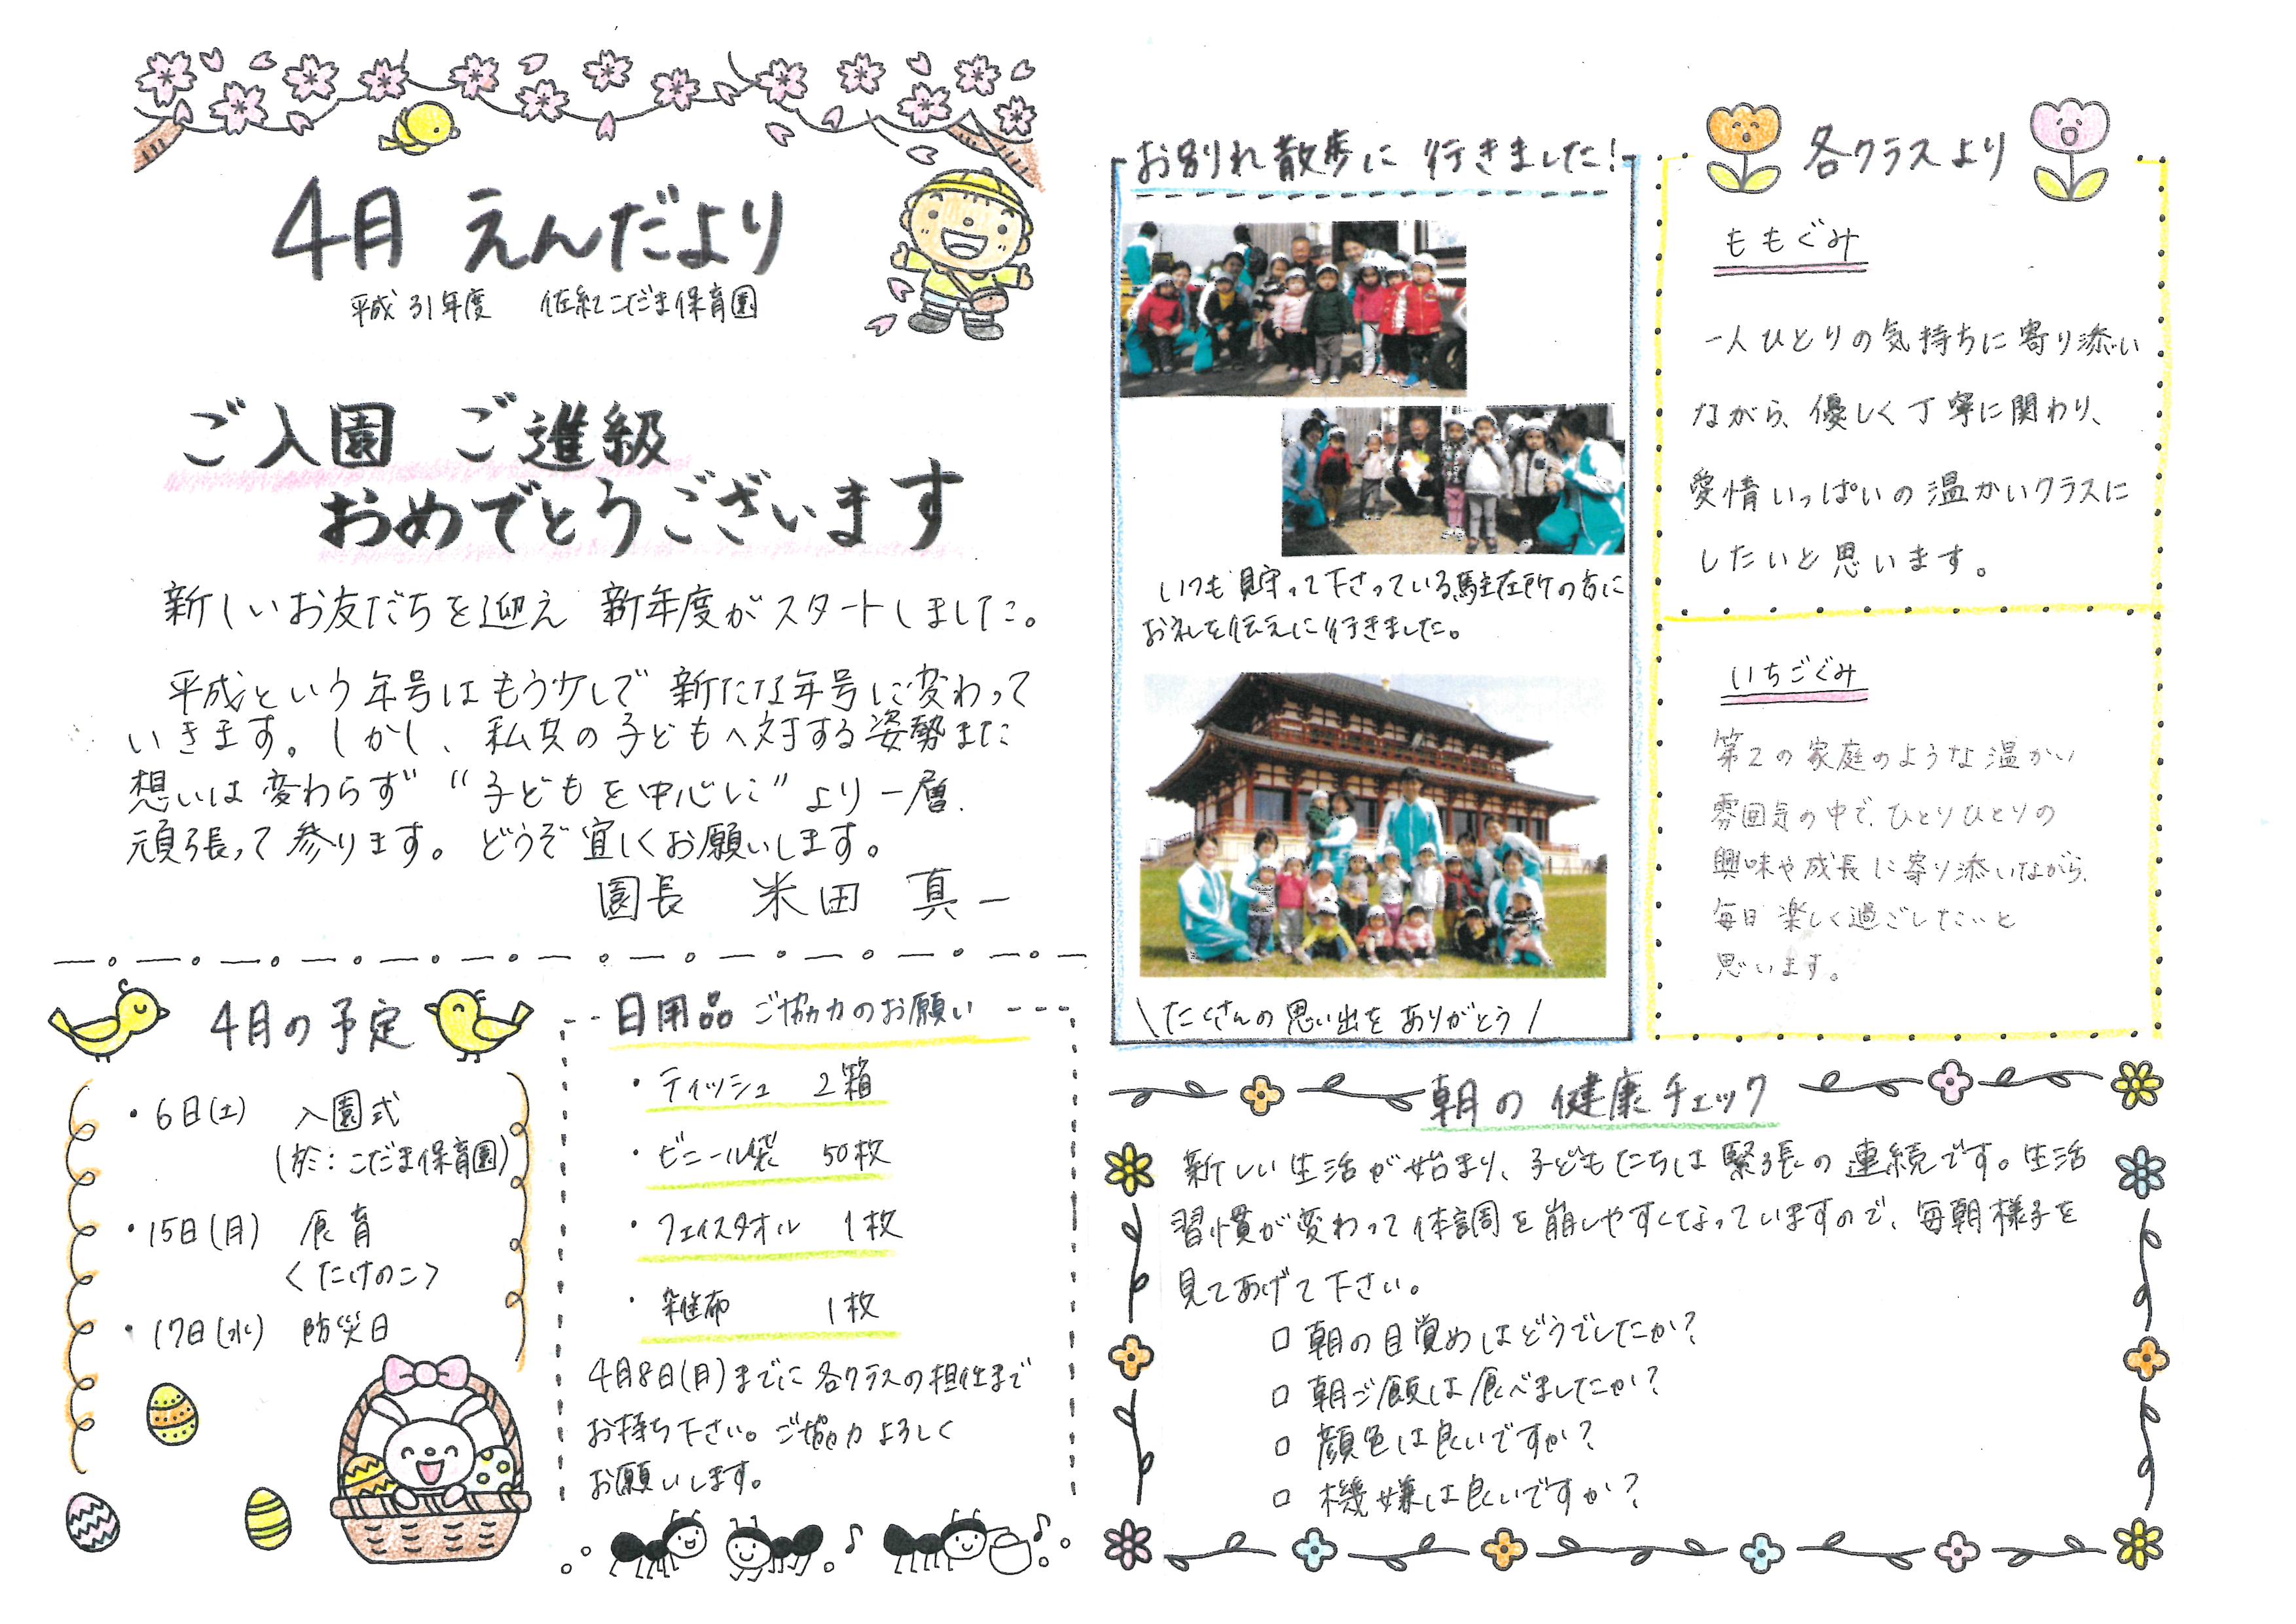 4月 えんだより
平成31年度 佐紀こだま保育園
ご入園 ご進級
おめでとうございます
新しいお友だちを迎え 新年度がスタートしました。
平成という年号はもう少しで 新たな年号に変わって
いきます。しかし、私共の子どもへ対する姿勢また
想いは変わらず“子どもを中心に”より一層、
頑張って参ります。どうぞ宜しくお願いします。
園長 米田 真一
4月の予定
・6日(土) 入園式
(於:こだま保育園)
・15日(月) 食育
<たけのこ>
・17日(水) 防災日
日用品 ご協力のお願い
・ティッシュ 2箱
・ビニール袋 50枚
・フェイスタオル 1枚
・雑布 1枚
4月8日(月)までに各クラスの担任まで
お持ち下さい。ご協力よろしく
お願いします。
お別れ散歩に 行きました!
いつも見守って下さっている駐在所の方に
お礼を伝えに行きました。
\たくさんの思い出を ありがとう/
各クラスより
ももぐみ
一人ひとりの気持ちに寄り添い
ながら、優しく丁寧に関わり、
愛情いっぱいの温かいクラスに
したいと思います。
いちごぐみ
第2の家庭のような温かい
雰囲気の中で、ひとりひとりの
興味や成長に寄り添いながら、
毎日楽しく過ごしたいと
思います。
朝の健康チェック
新しい生活が始まり、子どもたちは緊張の連続です。生活
習慣が変わって体調を崩しやすくなっていますので、毎朝様子を
見てあげて下さい。
□ 朝の目覚めはどうでしたか?
□ 朝ご飯は食べましたか?
□ 顔色は良いですか?
□ 機嫌は良いですか?